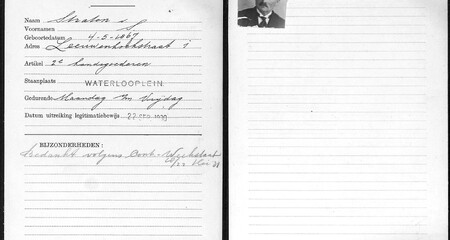 Naam Straton s
Voornamen S
Geboortedatum 4-3-1867
Adres Leeuwenhoekstraat 1
Artikel 2e handsgoederen
Staanplaats WATERLOOPLEIN.
Gedurende Maandag t/m Vrijdag
Datum uitreiking legitimatiebewijs 22 FEB. 1939
BIJZONDERHEDEN:
Bedankt volgens Cont.